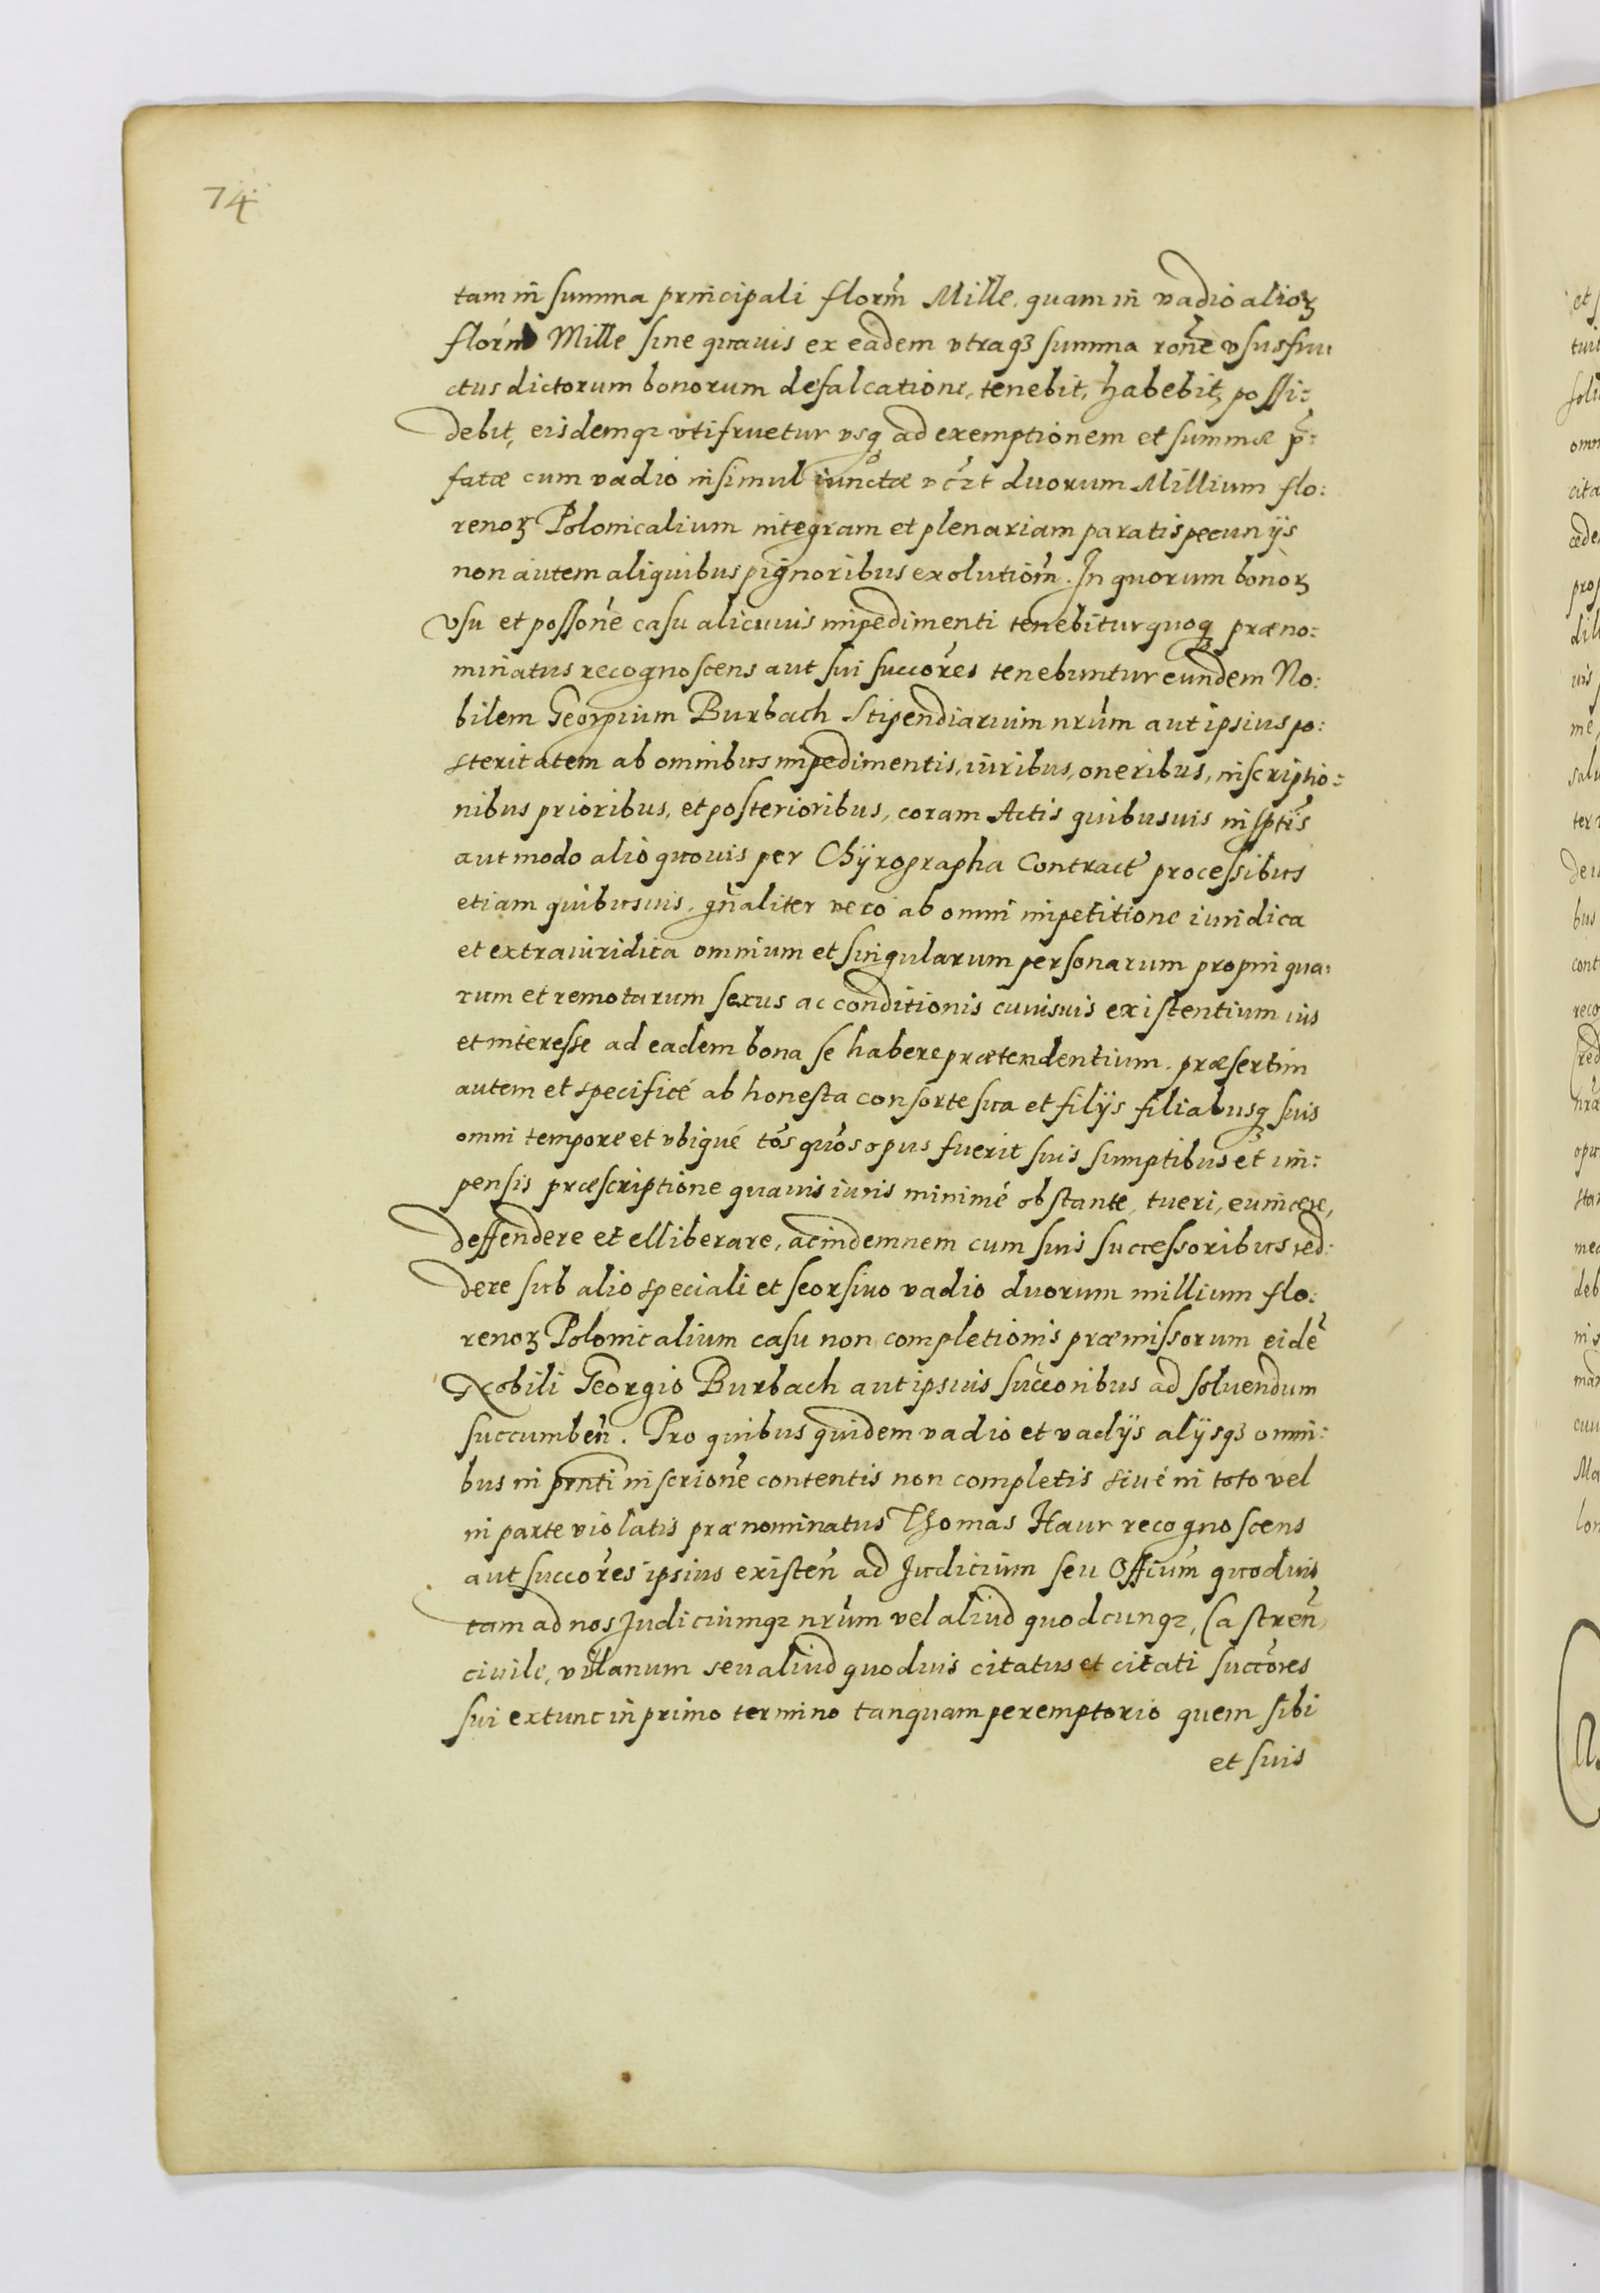 74
tam in summa principali florm̃ Mille, quam in vadio alioꝝ
florm̃ Mille sine quauis ex eadem vtraqꝫ summa rõne vsusfru
ctus dictorum bonorum defalcatione, tenebit, habebit, possi:
debit, eisdemqꝫ vtifruetur vsqꝫ ad exemptionem et summæ p̃:
fatæ cum vadio insimul iunctæ vꝫt duorum Millium flo:
renoꝝ Polonicalium integram et plenariam paratis pecunijs
non autem aliquibus pignoribus exolutiom̃. In quorum bonoꝝ
vsu et possõne casu alicuius impedimenti tenebitur quoqꝫ præno:
minatus recognoscens aut sui succores tenebuntur eundem No:
bilem Georgium Burbach Stipendiarium nrũm aut ipsius po:
steritatem ab omnibus impedimentis, iuribus, oneribus, inscriptio:
nibus prioribus, et posterioribus, coram Actis quibusuis insptis
aut modo alio quouis per Chÿrographa Contract processibus
etiam quibusuis, gñaliter vero ab omni impetitione iuridica
et extraiuridica omnium et singularum personarum propinqua:
rum et remotarum sexus ac conditionis cuiusuis existentium ius
et interesse ad eadem bona se habere prætendentium. præsertim
autem et specificé ab honesta consorte sua et filijs filiabusqꝫ suis
omni tempore et vbiqué tõs quõs opus fuerit suis sumptibus et im:
pensis præscriptione quauis iuris minimé obstante, tueri, euincere,
deffendere et elliberare, ac indemnem cum suis successoribus red:
dere sub alio speciali et seorsiuo vadio duorum millium flo:
renoꝝ Polonicalium casu non completionis præmissorum eidẽ
Nobili Georgio Burbach aut ipsius succoribus ad soluendum
succumbeñ. Pro quibus quidem vadio et vadijs alijsqꝫ omni:
bus in pñti inscrione contentis non completis siué in toto vel
in parte violatis prænominatus Thomas Haur recognoscens
aut succores ipsius existeñ ad Judicium seu Officium quoduis
tam ad nos Judiciumqꝫ nrũm vel aliud quodcunqꝫ, Castreñ
ciuile, villanum seu aliud quoduis citatus et citati succores
sui extunc in primo termino tanquam peremptorio quem sibi
et suis